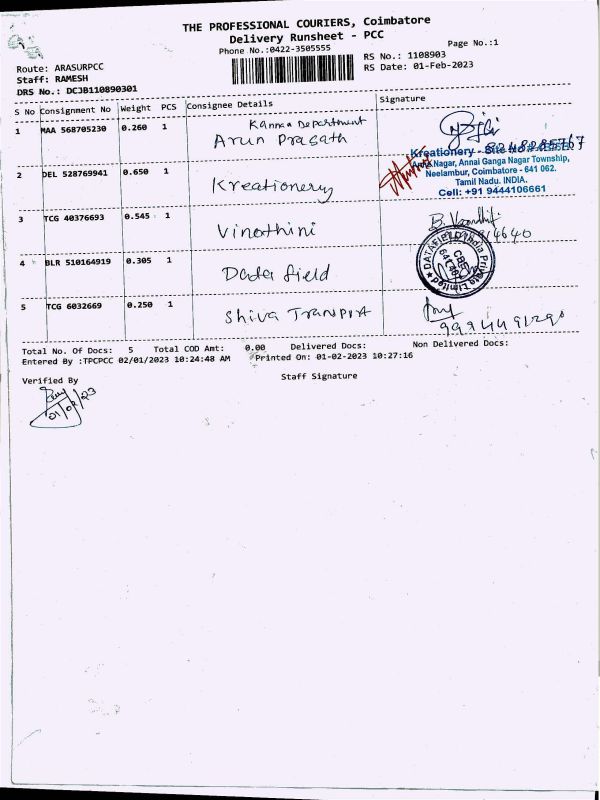 THE PROFESSIONAL COURIERS, Coimbatore
Delivery Runsheet - PCC
Phone No.:0422-3505555
Page No.:1
Route: ARASURPCC
Staff: RAMESH
DRS No.: DCJB110890301
RS No.: 1108903
RS Date: 01-Feb-2023
S No Consignment No Weight PCS Consignee Details Signature
1 MAA 568705230 0.260 1 Kannan Department
Arun Prasath
2 DEL 528769941 0.650 1 Kreationery
Kreationery - Site
Nagar, Annai Ganga Nagar Township,
Neelambur, Coimbatore - 641 062.
Tamil Nadu. INDIA.
Cell: +91 9444106661
3 TCG 40376693 0.545 1 Vinothini
4 BLR 510164919 0.305 1 Data field
DATAFIELD India Private Limited
CBE
5 TCG 6032669 0.250 1 Shiva Transport
Total No. Of Docs: 5 Total COD Amt: 0.00 Delivered Docs: Non Delivered Docs:
Entered By :TPCPCC 02/01/2023 10:24:48 AM Printed On: 01-02-2023 10:27:16
Verified By Staff Signature
01/02/23